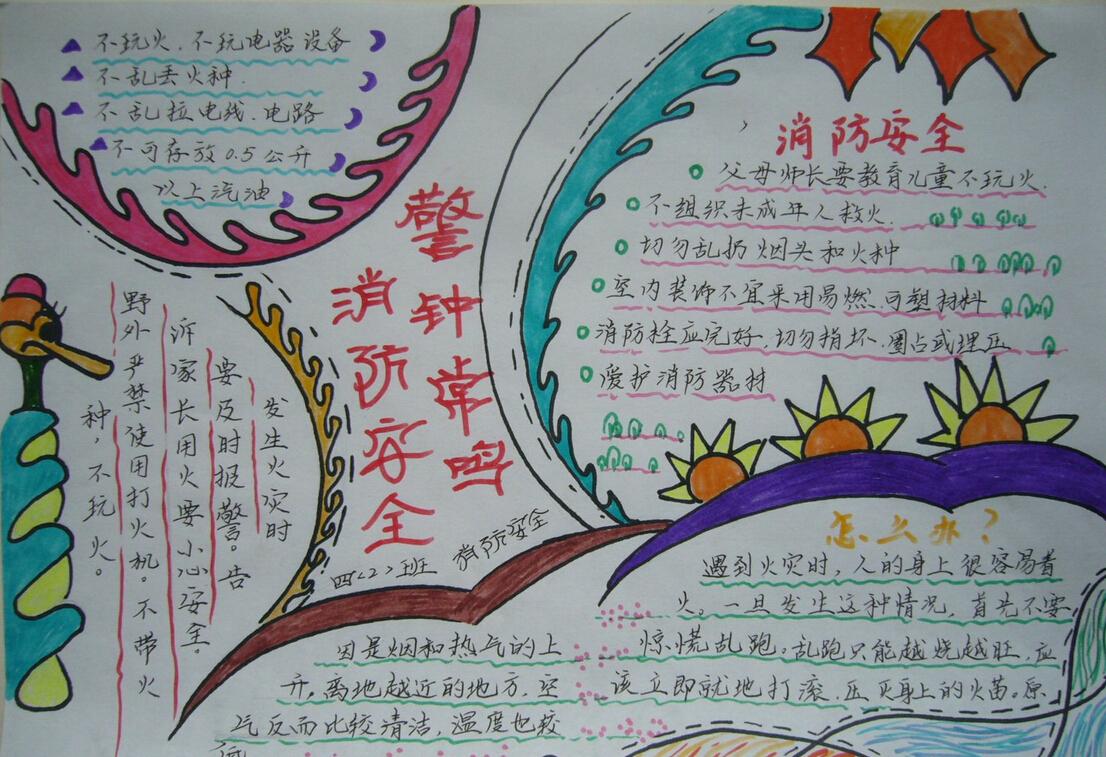 不玩火、不玩电器设备
不乱丢火种.
不乱拉电线、电路
不可存放0.5公升
以上汽油
警钟常鸣
消防安全
四<2>班 消防安全
发生火灾时
要及时报警。告
诉家长用火要小心安全。
野外严禁使用打火机。不带火
种,不玩火。
消防安全
父母师长要教育儿童不玩火.
不组织未成年人救火.
切勿乱扔烟头和火种
室内装饰不宜采用易燃、可塑材料
消防栓应完好,切勿损坏、圈占或埋压
爱护消防器材
怎么办?
遇到火灾时,人的身上很容易着
火。一旦发生这种情况,首先不要
惊慌乱跑。乱跑只能越烧越旺,应
该立即就地打滚,压灭身上的火苗。原
因是烟和热气的上
升,离地越近的地方,空
气反而比较清洁,温度也较
低